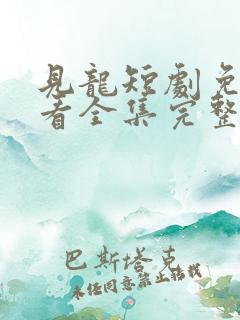 見龍短劇免
看全集完整
巴斯塔克
未经同意禁止转载